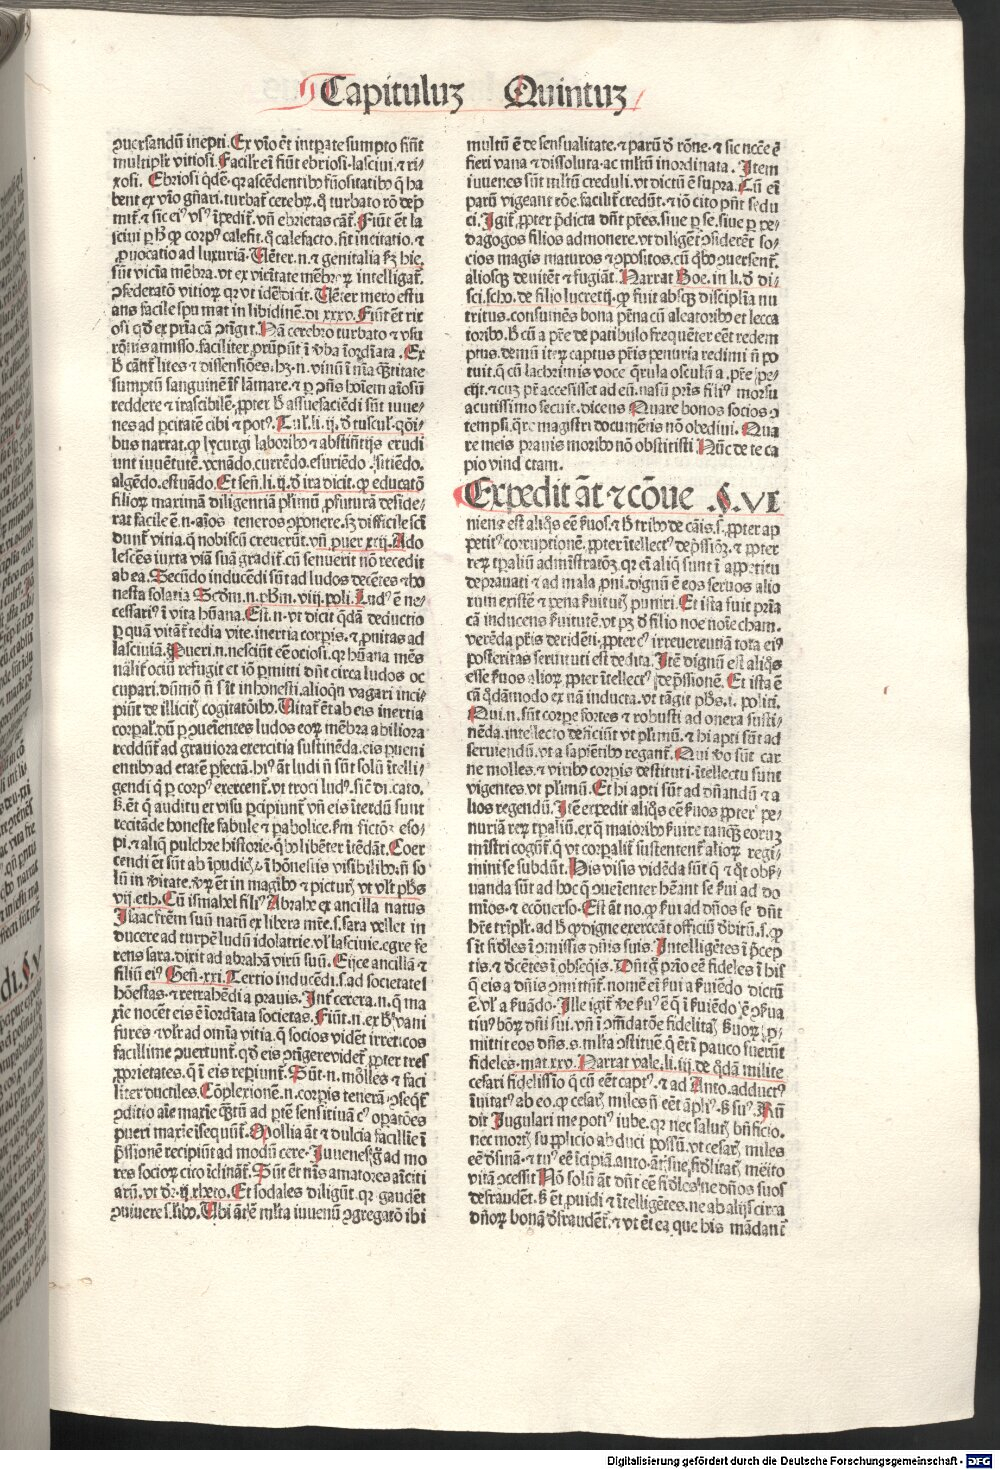 Capituluꝫ Quintuꝫ
ꝯuersandū inepti. Ex vīo ēt intꝑate sumpto fiūt
multiplr̄ vitiosi. Facilr̄ eī fiūt ebriosi. lasciui. ⁊ ri-
xosi. Ebriosi
bent ex vīo
mūt. ⁊ sic eiꝰ vsꝰ īpedit̄. vn̄ ebrietas cāt̄. Fiūt ēt la
sciui
ꝓuocatio ad luxuriā. Uēter. n. ⁊ genitalia
sūt vicīa mēbra. vt ex vicītate mēbroꝝ intelligat̄.
ꝯfederatō vitioꝝ qꝛ vt idē dicit. Uēter mero estu
ans facile spumat in libidinē. di xxxv. Fiūt ēt rix
osi qd̄ ex pria cā ꝯtīgit. Nā cerebro turbato ⁊ vsu
rōnis amisso. faciliter ꝓrūpūt ī v̄ba īordīata. Ex
lites ⁊ dissensiōes. hꝫ. n. vinū
sumptū sanguinē īflāmare. ⁊ ꝑ ꝯn̄s hoīem aīosū
reddere ⁊ irascibilē. ꝓpter assuefaciēdi sūt iuue-
nes ad ꝑcitatē cibi ⁊ potꝰ. Tul. li. ij. d̄ tuscul. q̄oi-
bus narrat. ꝙ lycurgi laboribꝰ ⁊ abstinētijs erudi
unt iuuētutē. venādo. currēdo. esuriēdo. sitiēdo.
algēdo. estuādo. Et sen̄. li. ij. d̄ ira dicit. ꝙ educatō
filioꝝ maximā diligentiā plimū ꝓfuturā deside-
rat facile ē. n. aīos teneros ꝯponere. sꝫ difficile
dunt̄ vitia. q̄ nobiscū creuerūt. vn̄ ꝓuer xxij. Ado
lescēs iuxta viā suā gradit̄. cū senuerit nō recedit
ab ea. Secūdo inducēdi sūt ad ludos decētes ⁊ ho
nesta solatia Scd̄m. n. phm. viij. poli. Ludꝰ ē ne-
cessariꝰ ī vita hūana. Est. n. vt dicit q̄dā deductio
ꝑ quā vitāt̄ tedia vite. inertia corpis. ⁊ ꝓnitas ad
lasciuiā. Pueri. n. nesciūt eē ociosi. qꝛ hūana mēs
nālit̄ ociū refugit et iō ꝑmitti dn̄t circa ludos oc
cupari. dūmō n̄ sīt inhonesti. alioqn̄ vagari inci-
piūt de illicitꝭ cogitatōibꝰ. Uitat̄ ēt ab eis inertia
corpal. dū ꝑ ꝯueīentes ludos eoꝝ mēbra abiliora
reddūt̄ ad grauiora exercitia sustinēda. eis ꝓueni
entibꝰ ad etatē ꝑfectā. hiꝰ āt ludi n̄ sūt solū ītelli-
gendi q̄ ꝑ corpꝰ exercent̄. vt troci ludꝰ. sic di. cato.
q̄ auditu et visu ꝑcipiunt̄ vn̄ eis īterdū sunt
recitāde honeste fabule ⁊ pabolice. fictōꝝ eso-
pi. ⁊ aliq̄ pulchre historie. q̄bꝰ libēter
cendi ēt sūt ab īpudicꝭ. ⁊ īhōnestis visibilibꝰ. n̄ so
lū in v̄itate. veꝝ ēt in magībꝰ ⁊ picturꝭ
vij. eth. Cū ismahel filiꝰ Abrahe ex ancilla natus
Isaac frēm suū natū ex libera mr̄e. s. sara vellet in
ducere ad turpē ludū idolatrie. vl lasciuie. egre fe
rens sara. dixit ad abrahā virū suū. Eijce ancillā ⁊
filiū eiꝰ Gen̄. xxi. Tertio inducēdi. s. ad societates
hōestas. ⁊ retrahēdi a prauis. Int̄ cetera. n. q̄ ma
xie nocēt eis ē īordīata societas. Fiūt. n. ex vani
fures ⁊ vlr̄ ad omīa vitia. q̄ socios vidēt irretitos
facillime ꝯuertunt̄. qd̄ eis ꝯtīgere videt̄ ꝓpter tres
ꝓprietates. q̄ ī eis repiunt̄. Sūt. n. molles ⁊ faci
liter ductiles. Cōplexionē. n. corpis tenerā
ꝯditio aīe maxīe q̄ntū ad ptē sensitiuā cꝰ oꝑatōes
pueri maxīe īsequūt̄. Mollia āt ⁊ dulcia facillīe ī
pressionē recipiūt ad modū cere. Iuuenes ad mo
res socioꝝ cito īclināt̄. Sūt ēt nīs amatores aīciti
arū. vt dr̄. ij. rheto. Et sodales diligūt. qꝛ gaudēt
ꝯuiuere Ubi āt ē mlta iuuenū ꝯgregatō ibi
multū ē de sensualitate. ⁊ parū d̄ rōne. ⁊ sic nccē ē
fieri vana ⁊ dissoluta. ac mltū inordinata. Item
iuuenes sūt mltū creduli. vt dictū ē supra. Cū eī
parū vigeant rōe. facilit̄ credūt. ⁊ iō cito pn̄t sedu
ci. Igit̄ ꝓpter p̄dicta dn̄t pr̄es. siue ꝑ se. siue ꝑ pe-
dagogos filios admonere. vt diligēt̄ ꝯsiderēt so-
cios magis maturos ⁊ ꝯpositos. cū q̄bꝰ ꝯuersent̄.
aliosqꝫ deuitēt ⁊ fugiāt. Narrat Boe. in li. d̄ di-
sci. scho. de filio lucretij. ꝙ fuit absqꝫ disciplīa nu
tritus. consumēs bona p̄ena cū aleatoribꝰ et lecca
toribꝰ. cū a pr̄e de patibulo frequēter eēt redem
ptus. demū iteꝝ captus pr̄is penuria redimi n̄ po
tuit. q̄ cū lachrimis voce q̄rula osculū a. pr̄e pe-
cijt. ⁊ cuꝫ pr̄ accessisset ad eū. nasū pr̄is filiꝰ morsu
acutissimo secuit. dicens Quare bonos socios ꝯ
tempsi. q̄re magistri documētis nō obediui. Qua
re meis prauis moribꝰ nō obstitisti. Nūc de te ca
pio vindictam.
Expedit āt ⁊ cōue .§.VI
niens est aliq̄s eē ẜuos. ⁊ tribꝰ de cāis. s. ꝓpter ap
petitꝰ corruptionē. ꝓpter ītellectꝰ dep̄ssiōꝫ. ⁊ ꝓpter
reꝝ tpaliū admīstratōꝫ. qꝛ eī aliq̄ sunt ī appetitu
deprauati ⁊ ad mala ꝓni. dignū ē eos seruos alio
rum existē ⁊ pena ẜuitutꝭ puniri. Et ista fuit pria
cā inducens ẜuitutē. vt pꝫ d̄ filio noe noīe cham.
verēda pr̄is deridēti. ꝓpter cꝰ irreuerentiā tota eiꝰ
posteritas seruituti est dedita. Itē dignū est aliq̄s
esse ẜuos alioꝝ ꝓpter ītellectꝰ dep̄ssionē. Et ista ē
cā q̄dāmodo ex nā inducta. vt tāgit phs. i. politi.
Qui. n. sūt corpe fortes ⁊ robusti ad onera susti-
nēda. intellectu deficiūt vt plimū. ⁊ hi apti sūt ad
seruiendū. vt a sapiētibꝰ regant̄. Qui vo sūt car
ne molles. ⁊ viribꝰ corpis destituti. ītellectu sunt
vigentes vt plimū. Et hi apti sūt ad dn̄andū ⁊ a
lios regendū. Itē expedit aliq̄s eē ẜuos ꝓpter pe-
nuriā reꝝ tpaliū. ex q̄ maioribꝰ ẜuire tanqꝫ eoruꝫ
mīstri cogūt̄. q̄ vt corpalit̄ sustentent̄ alioꝝ regi-
mini se subdūt. His visis vidēda sūt q̄ ⁊ q̄t obẜ-
uanda sūt ad hoc q̄ ꝯueīenter hēant se ẜui ad do
mīos. ⁊ ecōuerso. Est āt no. ꝙ ẜui ad dn̄os se dn̄t
hr̄e triplr̄. ad ꝙ digne exerceāt officiū d̄bitū. s. ꝙ
sīt fidēles ī ꝯmissis dn̄is suis. Intelligētes ī p̄cep
tis. ⁊ dōcētes ī obseqis. prīo eē fideles ī his
q̄ eis a dn̄is ꝯmittūt̄. nomē eī ẜui a ẜuiēdo dictū
ē. vl a ẜuādo. Ille igit̄ v̄e ẜuꝰ ē q̄ ī ẜuiēdo ē ꝯẜua
tiuꝰ bōꝝ dn̄i sui. vn̄ ī cōmēdatōe fidelitatꝭ ẜuoꝝ ꝓ-
mittit eos dn̄s. s. mlta ꝯstituē. q̄ ēt ī pauco fuerūt
fideles. mat. xxv. Narrat vale. li. iij. de q̄dā milite
cesari fidelissīo q̄ cū eēt captꝰ. ⁊ ad Anto. adductꝰ
īuitatꝰ ab eo. q̄ cesarꝭ miles n̄ eēt āpliꝰ. suꝰ. Rn̄
dit Iugulari me potiꝰ iube. qꝛ nec salutꝭ bn̄ficio.
nec mortꝭ supplicio abduci possū. vt cesarꝭ miles
eē d̄sinā. ⁊ tuꝰ eē īcipiā. anto. fidelitatꝭ meīto
vitā ꝯcessit Nō solū āt dn̄t eē fidēles ne dn̄os suos
defraudēt. ēt ꝓuidi ⁊ ītelligētes. ne ab alijs circa
dn̄oꝝ bona d̄fraudēt̄. ⁊ vt ēt ea que his mādant̄